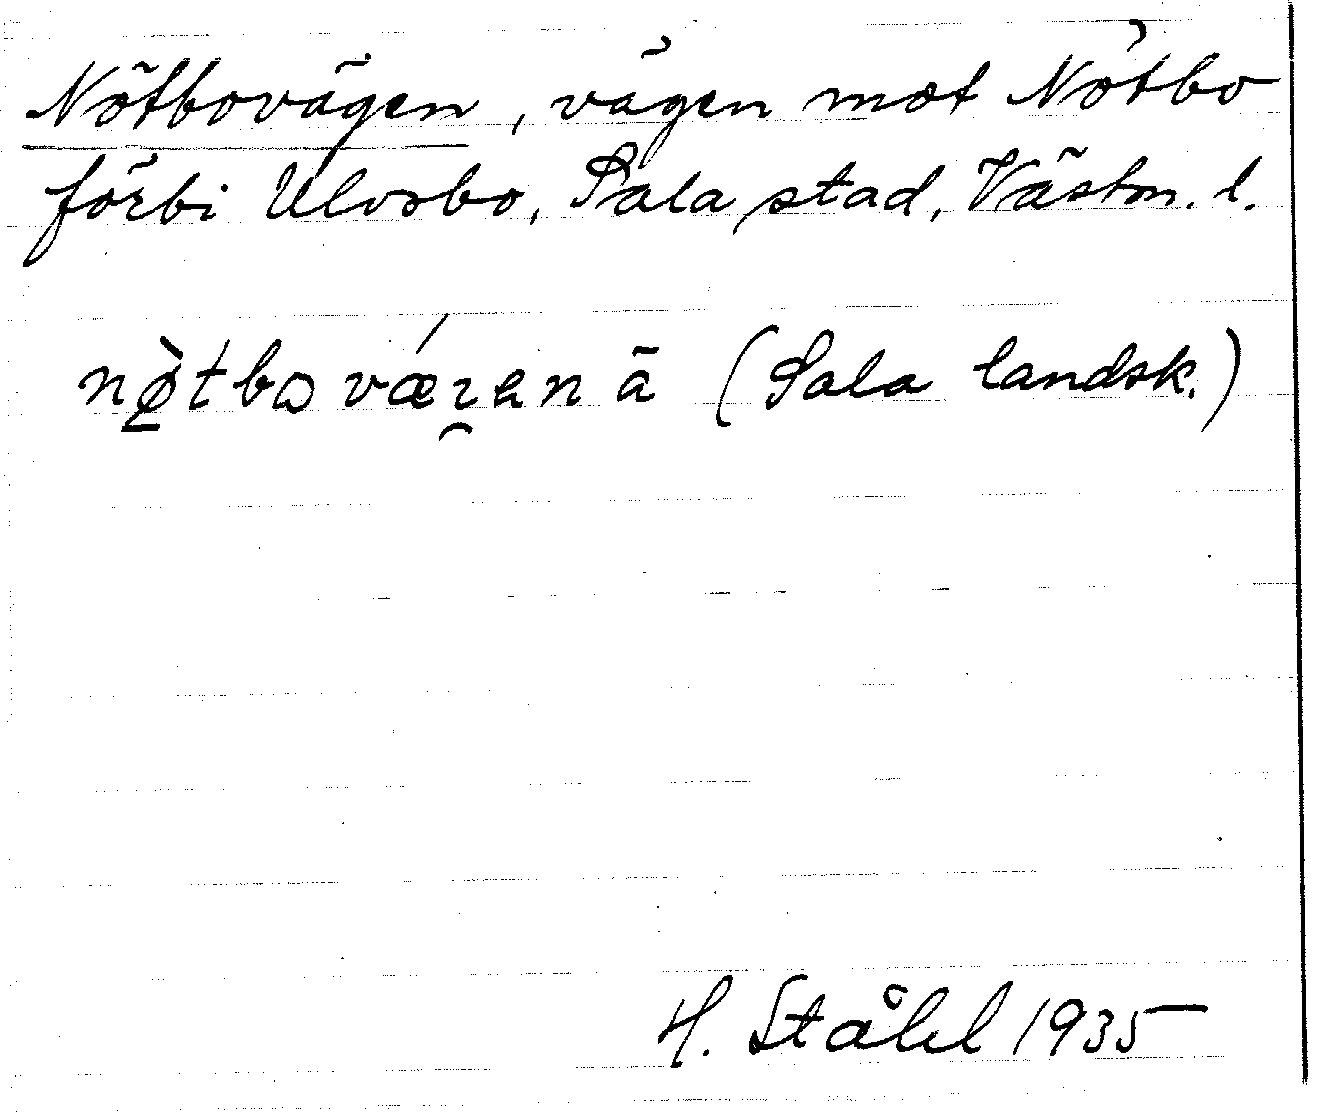 Nötbovägen, vägen mot Nötbo
förbi Ulvsbo, Sala stad, Västm. l.
nø̀tbovǽɡen ä (Sala landsk.)
H. Ståhl 1935